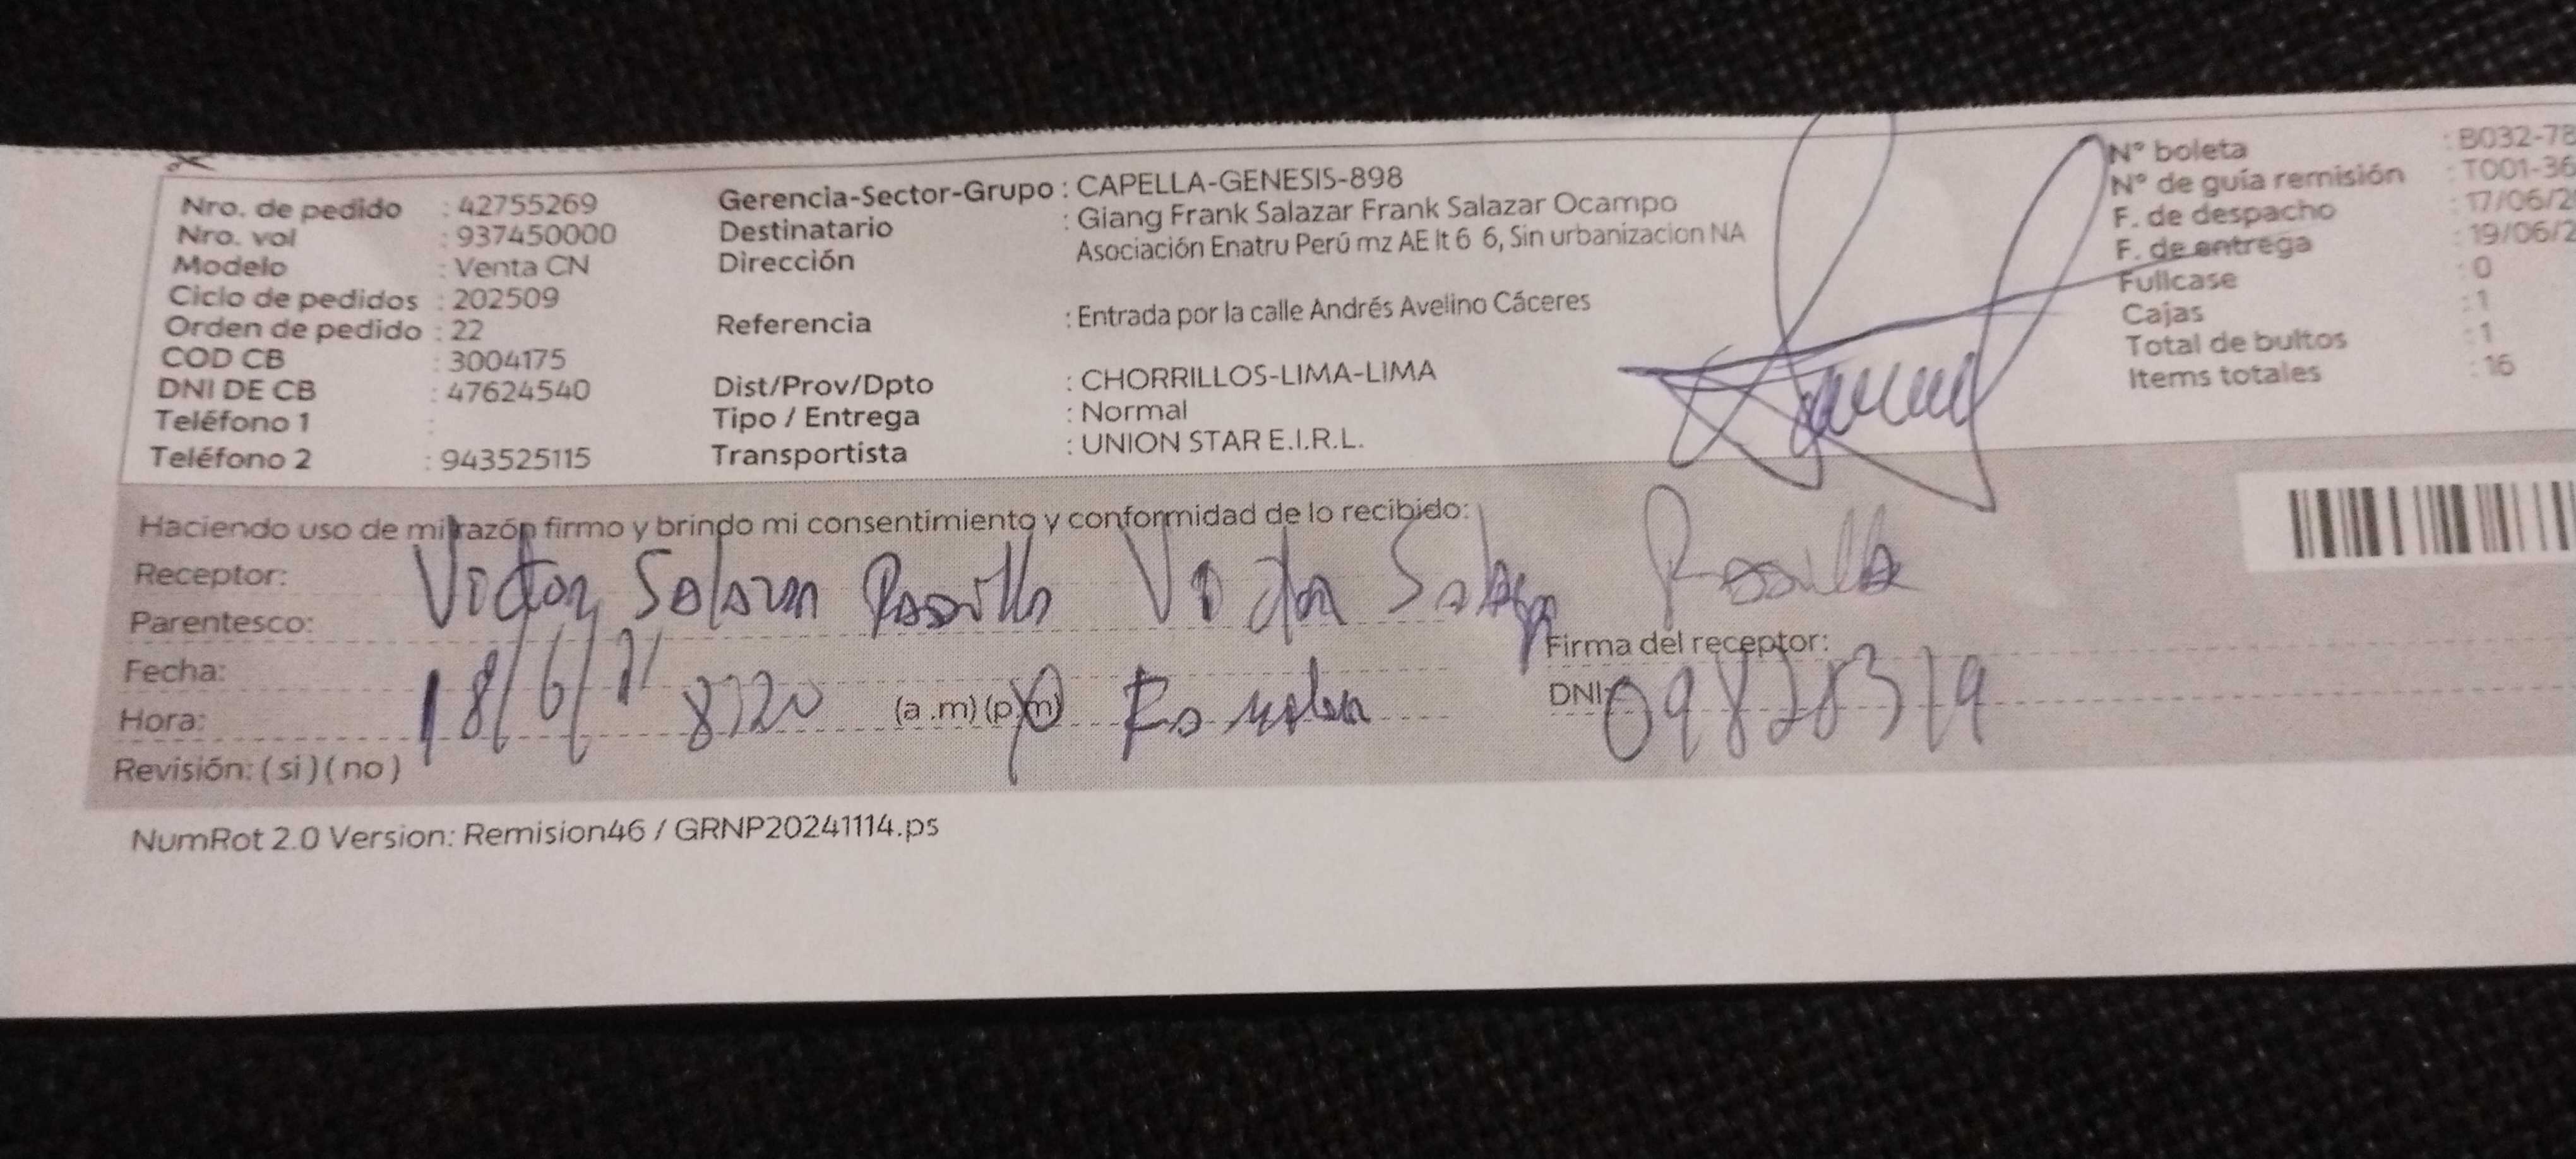 Nro. de pedido : 42755269
Nro. vol : 937450000
Modelo : Venta CN
Ciclo de pedidos : 202509
Orden de pedido : 22
COD CB : 3004175
DNI DE CB : 47624540
Teléfono 1 :
Teléfono 2 : 943525115
Gerencia-Sector-Grupo : CAPELLA-GENESIS-898
Destinatario : Giang Frank Salazar Frank Salazar Ocampo
Dirección Asociación Enatru Perú mz AE lt 6 6, Sin urbanizacion NA
Referencia : Entrada por la calle Andrés Avelino Cáceres
Dist/Prov/Dpto : CHORRILLOS-LIMA-LIMA
Tipo / Entrega : Normal
Transportista : UNION STAR E.I.R.L.
N° boleta : B032-78
N° de guía remisión : T001-36
F. de despacho : 17/06/2
F. de entrega : 19/06/2
Fullcase : 0
Cajas : 1
Total de bultos : 1
Items totales : 16
Haciendo uso de mi razón firmo y brindo mi consentimiento y conformidad de lo recibido:
Receptor: Victor Salazar Victor
Parentesco:
Firma del receptor:
Fecha: 18/6/
Hora: 8:20 (a .m) (p.m)
DNI:
Revisión: ( si ) ( no )
NumRot 2.0 Version: Remision46 / GRNP20241114.ps